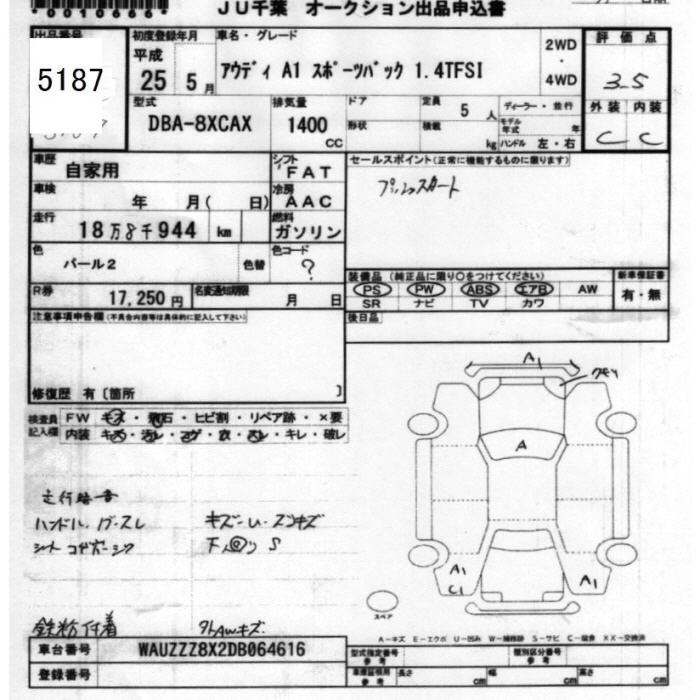 *0010666*
JU千葉 オークション出品申込書
出品番号
5187
初度登録年月
平成
25 5月
車名・グレード
アウディ A1 スポーツバック 1.4TFSI
2WD
・
4WD
評価点
3-5
外装 内装
C C
型式
DBA-8XCAX
排気量
1400
CC
ドア
形状
定員
5 人
積載
kg
ディーラー・並行
モデル年式 年
ハンドル 左・右
車歴
自家用
シフト
FAT
車検
年 月( 日)
冷房
AAC
走行
18万8千944 km
燃料
ガソリン
色
パール2
色替
色コード
?
R券
17,250円
名変通知期限
月 日
セールスポイント(正常に機能するものに限ります)
プッシュスタート
装備品 (純正品に限り○をつけてください)
PS PW ABS エアB AW
SR ナビ TV カワ
新車保証書
有・無
後日品
注意事項申告欄(不具合内容等は具体的に記入して下さい)
修復歴 有〔箇所 〕
検査員記入欄
FW キズ・飛石・ヒビ割・リペア跡・×要
内装 キズ・汚レ・コゲ・穴・スレ・キレ・破レ
ハンドル
シート
キズ
鉄粉付着
外AWキズ
A1
クモリ
A
A1
C1
A1
スペア
A-キズ E-エクボ U-凹み W-補修跡 S-サビ C-腐食 XX-交換済
車台番号
WAUZZZ8X2DB064616
登録番号
型式指定番号
参考
類別区分番号
参考
車庫証明用
参考
長さ cm
幅 cm
高さ cm